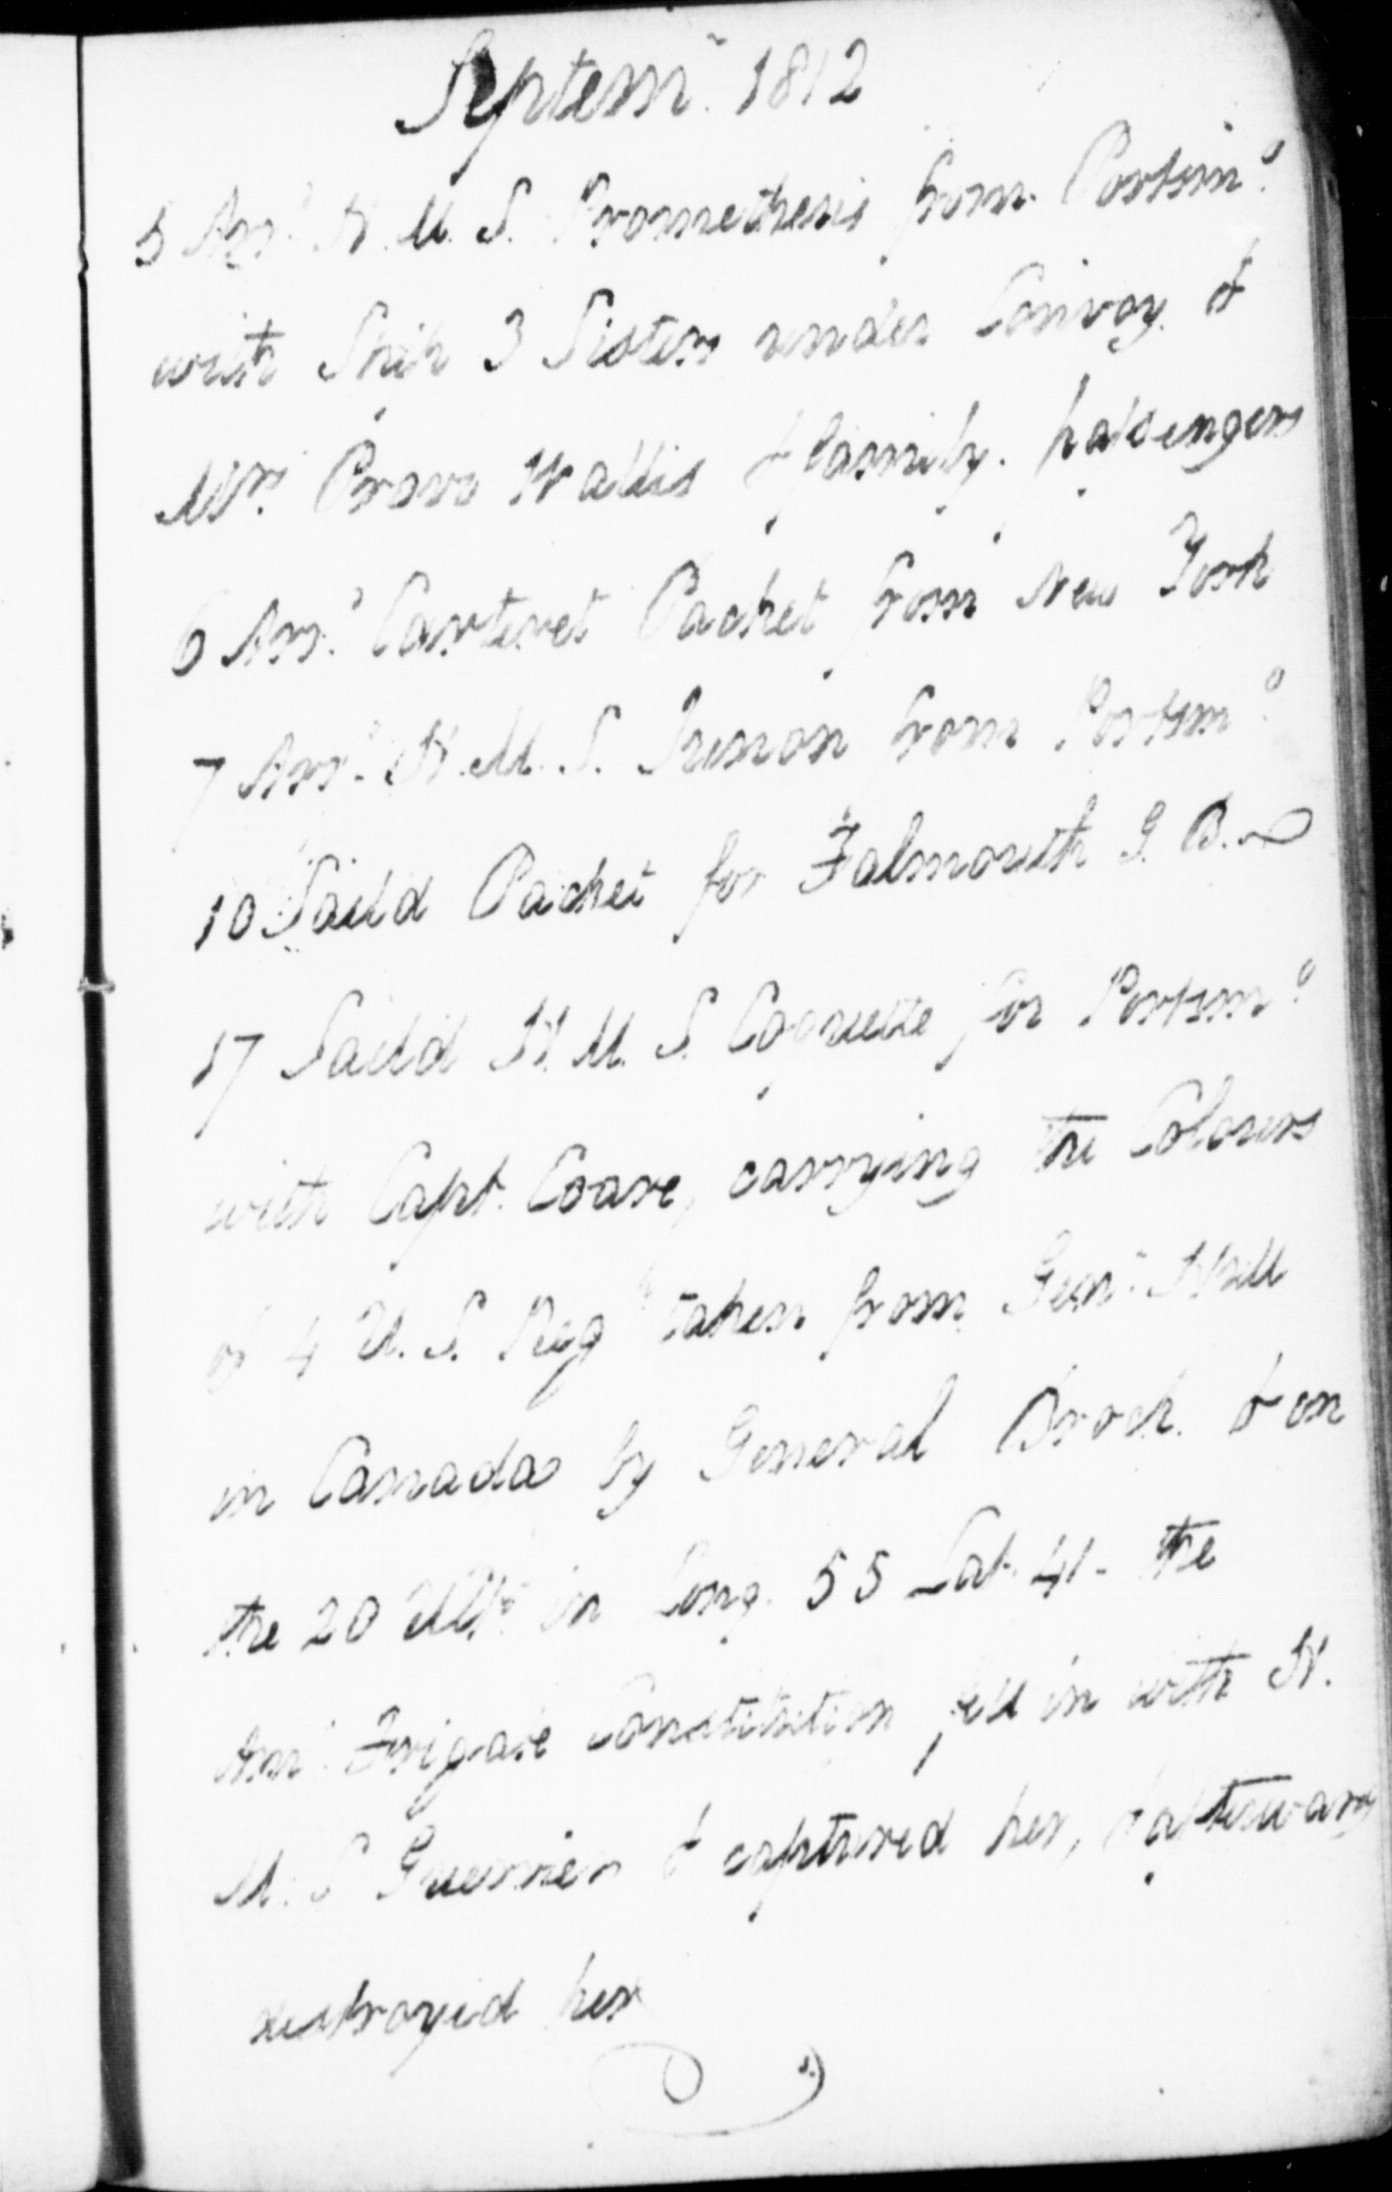 Septemr. 1812
5 Arrd. H. M. S. Prometheus from Portsmo.
with Ship 3 Sisters under Convoy. &
Mrs. Provo Wallis & family. passengers
6 Arrd. Carteret Packet from New York
7 Arrd. H. M. S. Junon from Portsmo.
10 Saild Packet for Falmouth G. B.
17 Saild H. M. S. Coquette for Portsmo.
with Capt. Coare, carrying the Colours
of 4 U. S. Regt taken from Genl. Hull
in Canada by General Brock. & on
the 20 Ulto. in Long. 55 Lat. 41- the
Amn. Frigate Constitution fell in with H.
M. S Guerrier & captured her, & afterwards
destroyed her